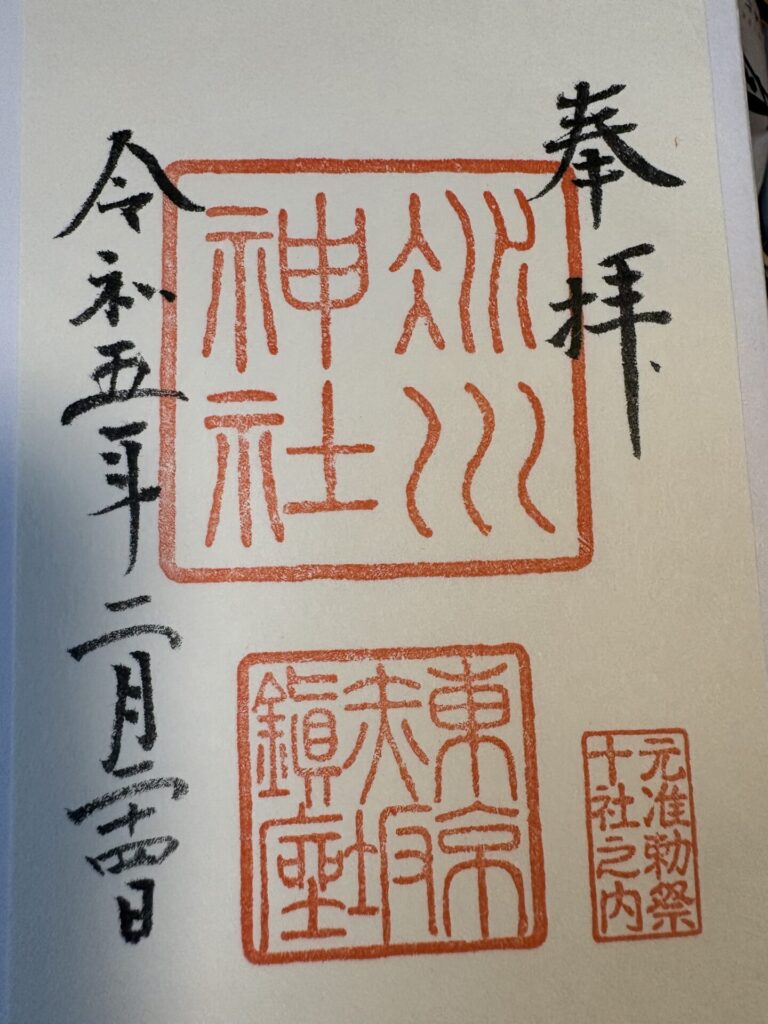 奉拝
氷川
神社
東京
赤坂
鎮座
元准勅祭
十社之内
令和五年二月二十四日